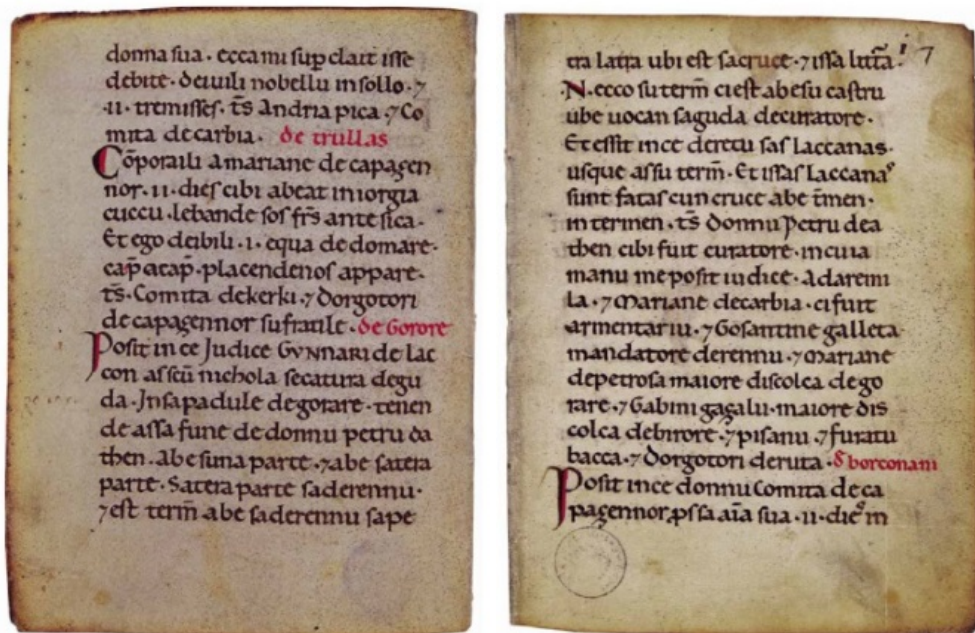 donna sua · ecca mi sup̄ clait isse
debite · deiuili nobellu in sollo · ⁊
·II· tremisses. t̄s Andria pica ⁊ Co
mita de carbia. de trullas
Cōporaili a mariane de capagen
nor. II. dies cibi abeat in iorgia
cuccu . lebande sos fr̄s ante sica.
Et ego deibili .I. equa de domare.
cap̄ a cap̄. placendenos appare.
t̄s. Comita de kerki. ⁊ dorgotori
de capagennor su fratile. de Gorore
Posit in ce Judice GVNNARI de lac
con assc̄u nichola secatura de gu
da. Jnsa padule de gorare. tenen
de assa fune de donnu petru da
then. abes una parte. ⁊ abe satera
parte. Satera parte sa de rennu.
⁊ est term̄ abe sa de rennu sa pe
tra latra ubi est sa cruce. ⁊ issa litt̄a.
N. ecco su term̄ ci est abesu castru
ube uocan saguda de curatore.
Et essit ince deretu sas laccanas.
usque assu term̄. Et issas laccanas
sunt fatas cun cruce abe t̄men.
in termen. t̄s donnu Petru de a
then cibi fuit curatore. in cuia
manu me posit iudice. a daremi
la. ⁊ Mariane de carbia. ci fuit
armentariu. ⁊ Gosantine galleta
mandatore de rennu. ⁊ Mariane
de petrosa maiore discolca de go
rare. ⁊ Gabini gagalu. maiore dis
colca de birore. ⁊ pisanu. ⁊ furatu
bacca. ⁊ dorgotori de ruta. đ bortonani
Posit in ce donnu Comita de ca
pagennor ꝓssa aīa sua. II. dies in